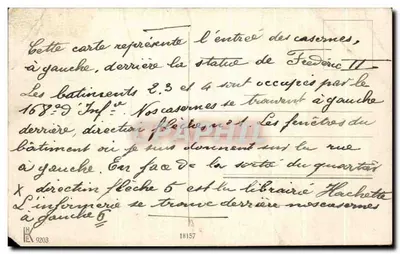 Cette carte représente l'entrée des casernes,
à gauche, derrière la statue de Frédéric II
Les bâtiments 2.3 et 4 sont occupés par le
168e d'Infie. Nos casernes se trouvent à gauche
derrière, direction flèche 1. Les fenêtres du
bâtiment où je suis donnent sur la rue
à gauche. En face de la sortie du quartier
X direction flèche 5 est la librairie Hachette
L'infirmerie se trouve derrière nos casernes
à gauche 6
9203
18157